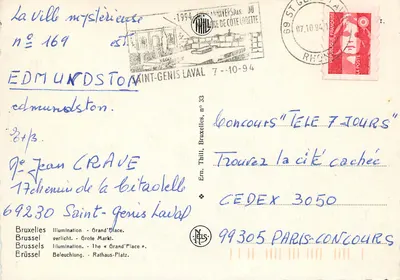 La ville mystérieuse
n° 169 est
EDMUNDSTON
edmundston.
Exp.
Me Jean CRAVE
17 chemin de la Citadelle
69230 Saint-Genis Laval
Bruxelles Illumination - Grand'Place.
Brussel verlicht. - Grote Markt.
Brussels Illumination. - The « Grand'Place ».
Brüssel Beleuchtung. - Rathaus-Platz.
Ern. Thill, Bruxelles, n° 33
NELS
THILL
SAINT-GENIS LAVAL 7-10-94
69 ST GE
07.10.94
RH
Concours "TELE 7 JOURS"
Trouvez la cité cachée
CEDEX 3050
99305 PARIS-CONCOURS